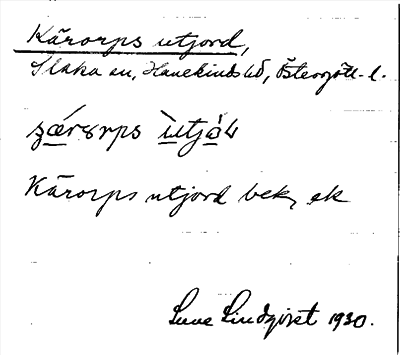 Kärorps utjord,
Slaka sn, Hanekinds hd, Östergötl. l.
Kärorps utjord bek, ek
Sune Lindqvist 1930.